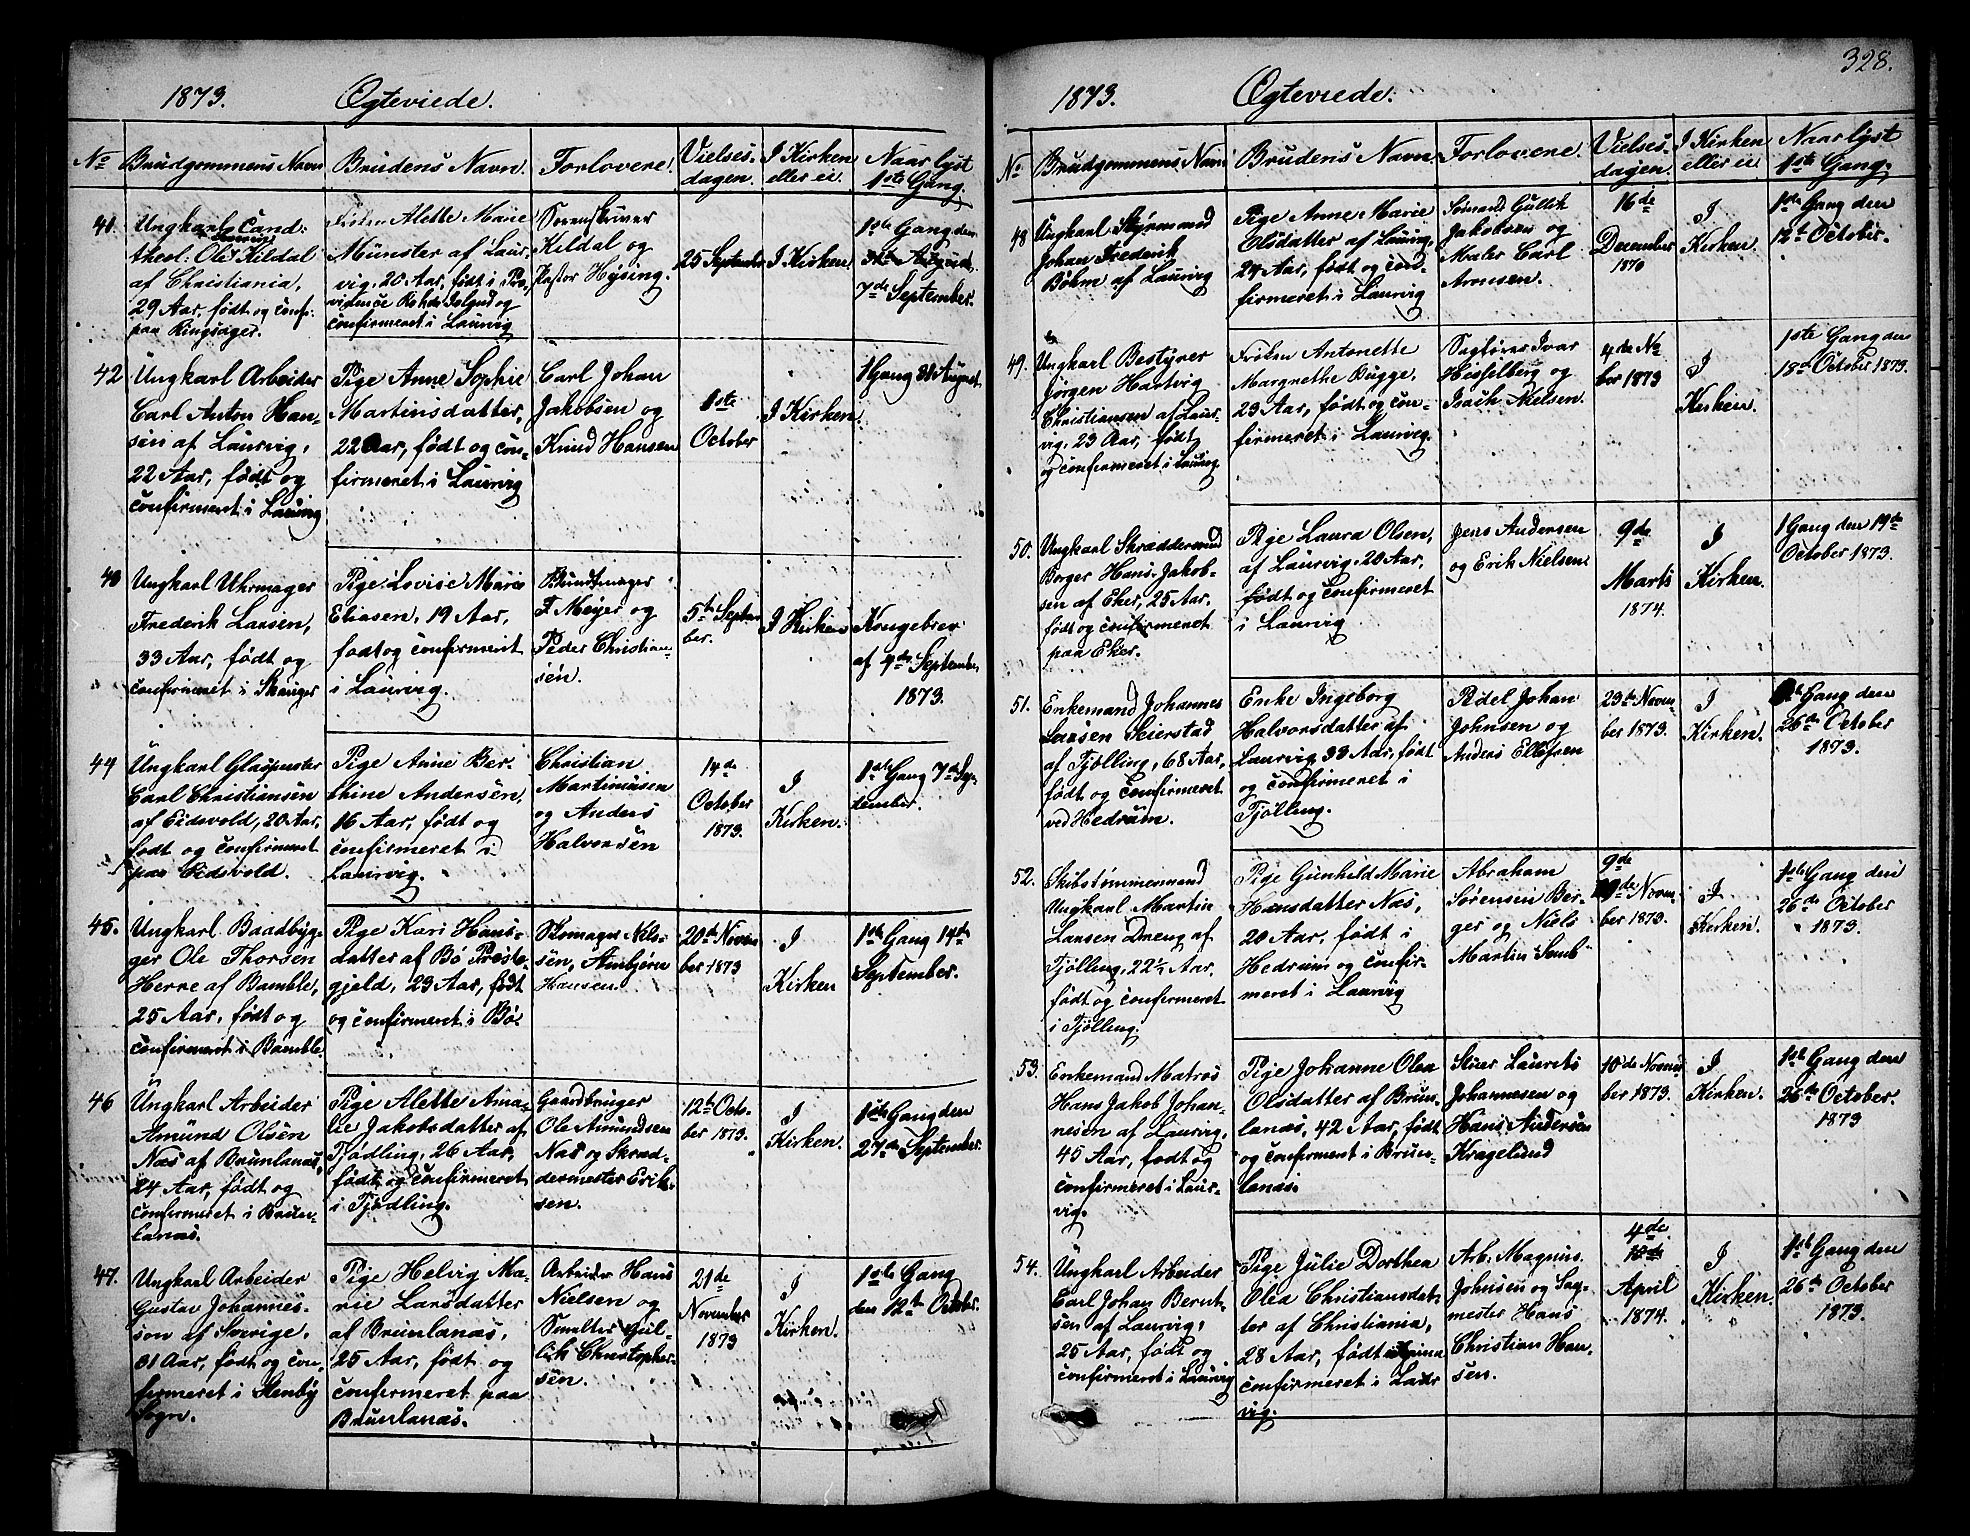 328.
1873. Ægteviede.
No Brudgommens Navn Brudens Navn. Forlovere. Vielses- I Kirken Naar lyst
dagen. eller ei. 1ste Gang.
41. Ungkarl Cand:
theol: Ole Kildal
af Christiania,
29 Aar, født og conf:
paa Ringsager.
Frøken Alette Marie
Münster af Laur-
vig, 20 Aar, født i Pro-
confirmeret i Laurvig
Sorenskriver
Kildal og
Pastor Hysing.
25 September
I Kirken
1ste Gang den
31te August
7de September.
42 Ungkarl Arbeider
Carl Anton Han-
sen af Laurvig,
22 Aar, født og
confirmeret i Laurvig
Pige Anne Sophie
Martinsdatter,
22 Aar, født og con-
firmeret i Laurvig
Carl Johan
Jakobsen og
Knud Hansen
1ste
October
I Kirken.
1 Gang 31 August
43 Ungkarl Uhrmager
Frederik Larsen,
33 Aar, født og
confirmeret i Skauger
Pige Lovise Marie
Eliasen, 19 Aar,
født og confirmeret
i Laurvig.
Bundtmager
F Meyer og
Peder Christian-
sen.
5te Septem
ber.
I Kirken
Kongebrev
af 4de September
1873.
44 Ungkarl Glaspuster
Carl Christiansen
af Eidsvold, 20 Aar,
født og confirmeret
paa Eidsvold.
Pige Anne Ber-
thine Andersen,
16 Aar, født og
confirmeret i
Laurvig.
Christian
Martiniusen
og Anders
Halvorsen
14de
October
1873.
I
Kirken.
1ste Gang 7de Sep-
tember.
45. Ungkarl Baadbyg-
ger Ole Thorsen
Herre af Bamble,
25 Aar, født og
confirmeret i Bamble.
Pige Kari Hans-
datter af Bø Præste-
gjeld, 23 Aar, født
og confirmeret i Bø
Skomager Nils-
sen, Anbjørn
Hansen.
20de Novem
ber 1873
I
Kirken
1ste Gang 14de
September.
46 Ungkarl Arbeider
Amund Olsen
Næs af Brunlanæs,
24 Aar, født og
confirmeret i Brun-
lanæs.
Pige Alette Ama-
lie Jakobsdatter af
Tjødling, 26 Aar,
født og confirmeret
i Tjødling.
Gaardbruger
Ole Amundsen
Næs og Skræd-
dermester Erik-
sen.
12te Octo-
ber 1873.
I
Kirken.
1ste Gang den
21de September.
47. Ungkarl Arbeider
Gustav Johannes-
son af Sverige,
31 Aar, født og con-
firmeret i Stenby
Sogn.
Pige Helvig Ma-
rie Larsdatter
af Brunlanæs,
25 Aar, født og
confirmeret paa
Brunlanæs.
Arbeider Hans
Nielsen og
Smelter Gul-
lik Christopher-
sen.
21de
November
1873
I
Kirken.
1ste Gang
den 12te October.
1873. Ægteviede.
No Brudgommens Navn Brudens Navn. Forlovere. Vielses- I Kirken Naar lyst
dagen. eller ei 1ste Gang.
48 Ungkarl Styrmand
Johan Frederik
Bøhm af Laurvig
Pige Anne Marie
Olsdatter af Laurvig,
24 Aar, født og con-
firmeret i Laurvig
Sømand Gullik
Jakobsen og
Maler Carl
Aronsen.
16de
December
1870
I
Kirken.
1ste Gang den
12te October.
49. Ungkarl Bestyrer
Jørgen Hartvig
Christiansen af Laur-
vig, 23 Aar, født
og confirmeret i Laurvig
Frøken Antonette
Margrethe Bugge.
23 Aar, født og con-
firmeret i Laurvig.
Sagfører Ivar
Hesselberg og
Isach Nielsen.
4de No
ber 1873
I
Kirken.
1ste Gang den
18de October 1873.
50. Ungkarl Skræddersvend
Borger Hans Jakob-
sen af Eker, 25 Aar.
født og confirmeret
paa Eker.
Pige Laura Olsen,
af Laurvig, 20 Aar,
født og confirmeret
i Laurvig
Jens Andersen
og Erik Nielsen
9de
Marts
1874.
I
Kirken.
1 Gang den 19de
October 1873.
51. Enkemand Johannes
Larsen Seierstad
af Tjølling, 68 Aar,
født og confirmeret
ved Hedrum.
Enke Ingeborg
Halvorsdatter af
Laurvig 33 Aar, født
og confirmeret i
Tjølling.
Pedel Johan
Johnsen og
Anders Ellefsen
23de Novem-
ber 1873.
I
Kirken.
1ste Gang den
26de October
1873.
52. Skibstømmermand
Ungkarl Martin
Larsen Dreng af
Tjølling, 22½ Aar,
født og confirmeret
i Tjølling.
Pige Gunhild Marie
Hansdatter Næs,
20 Aar, født i
Hedrum og confir-
meret i Laurvig
Abraham
Sørensen Ber-
ger og Niels
Martin Semb
9de
Novem-
ber 1873.
I
Kirken.
1ste Gang den
26de October
1873.
53. Enkemand Matros
Hans Jakob Johan-
nesen af Laurvig,
45 Aar, født og
confirmeret i Laur-
vig.
Pige Johanne Olea
Olsdatter af Brun-
lanæs, 42 Aar, født
og confirmeret i Brun-
lanæs.
Stuer Laurets
Johannesen og
Hans Andersen
Kragelund
10de Novem
ber 1873.
I
Kirken.
1ste Gang den
26de October.
1873
54. Ungkarl Arbeider
Carl Johan Bernt-
sen af Laurvig,
25 Aar, født og
confirmeret i Laurvig
Pige Julie Dorthea
Olea Christiansdat-
ter af Christiania,
28 Aar, født
confirmeret i Laur
vig.
Arb. Magnus
Johnsen og Sag-
mester Hans
Christian Han-
sen.
4de
April
1874.
I
Kirken.
1ste Gang den
26de October
1873.